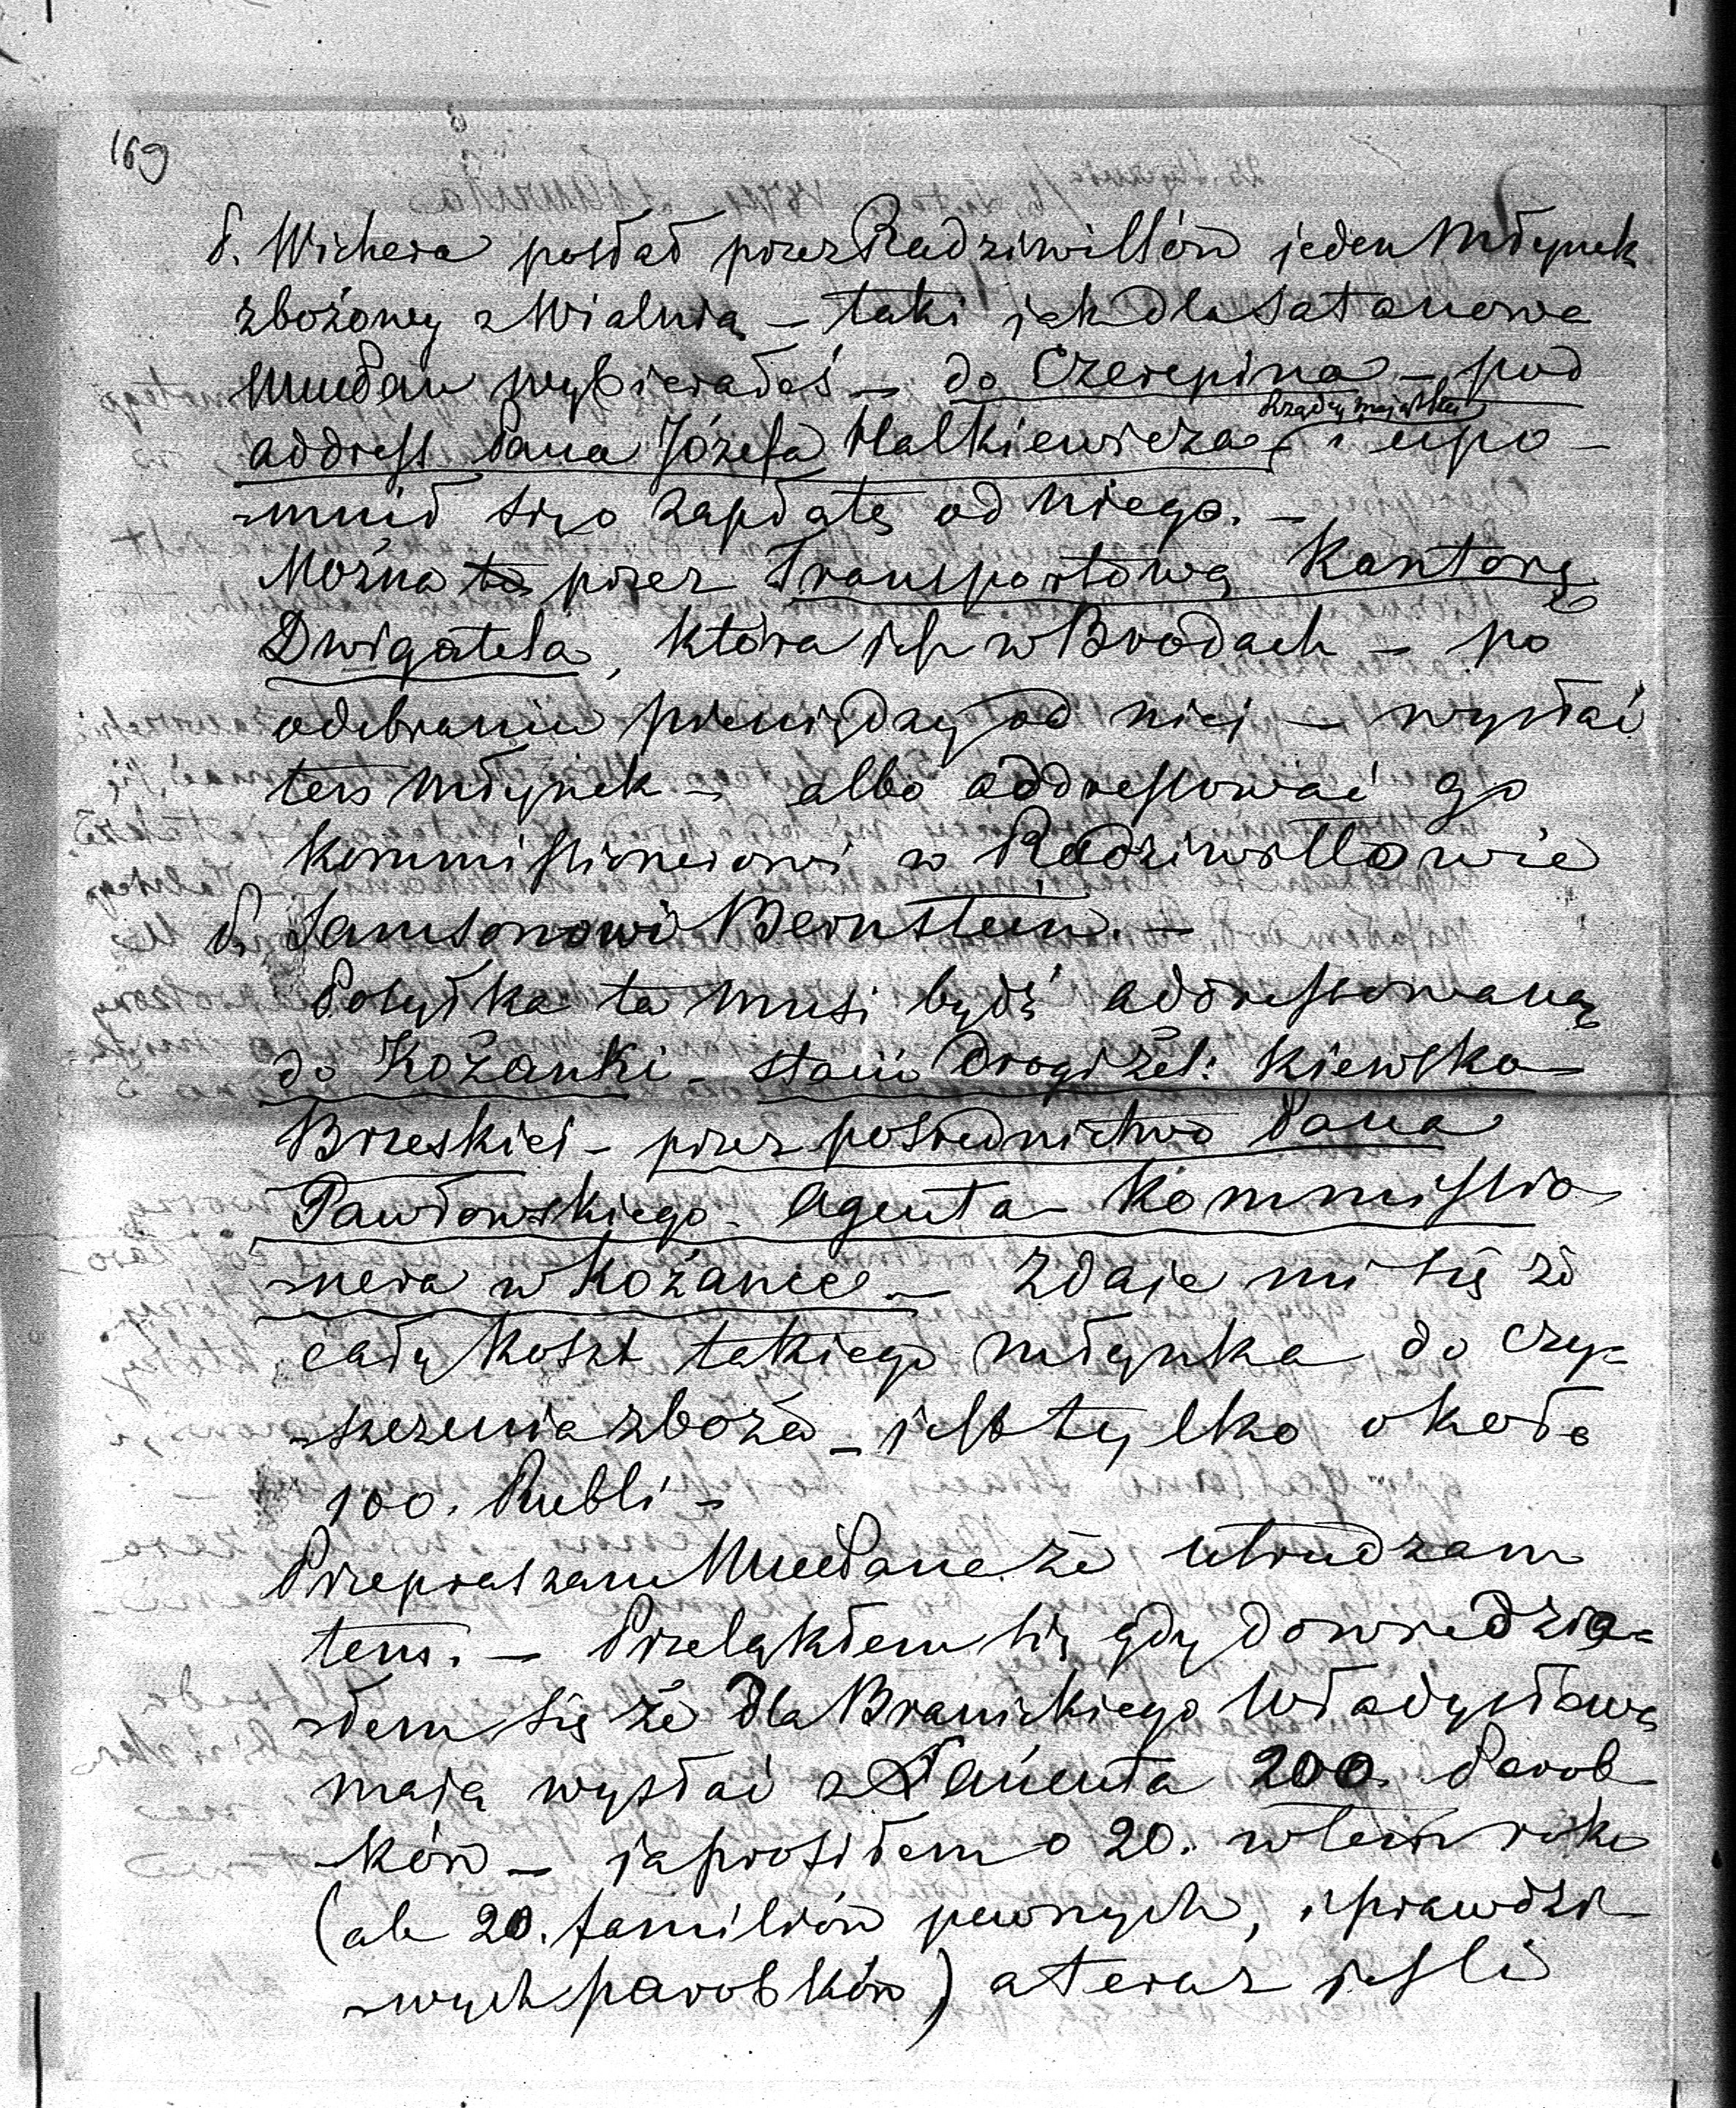 169
P. Wichera posłał przez Radziwiłłów jeden Młynek
zbożowy z Wialnią – taki jak dla Satanowa
wybierałeś – do Czerepina – pod
Rządcy majątku
address Pana Józefa Halkiewicza i upo-
-mniał się o zapłatę od niego. –
Można to przez Transportową Kantorę
Dwigatela, która jest w Brodach – po
odebraniu pieniędzy od niej – wysłać
ten Młynek – albo addressować go
kommissionerowi w Radziwiłłowie
P. Samsonowi Bernstein. –
Posyłka ta musi bydź addressowaną
do Kożanki – stacii Drogi żel: Kiewsko-
Brzeskiej – przez pośrednictwo Pana
Pawłowskiego – Agenta – Kommissio-
-nera w Kożance – zdaje mi się że
cały koszt takiego młynka do czy-
-szczenia zboża – jest tylko około
100. Rubli –
Przepraszam że utrudzam
tem. – Przeląkłem się gdy dowiedzia-
-łem się że dla Branickiego Władysława
mają wysłać z Łańcuta 200. Parob-
-ków – ja prosiłem o 20. w tem roku
(ale 20. familiów pewnych, i prawdzi-
-wych parobków) a teraz jeśli